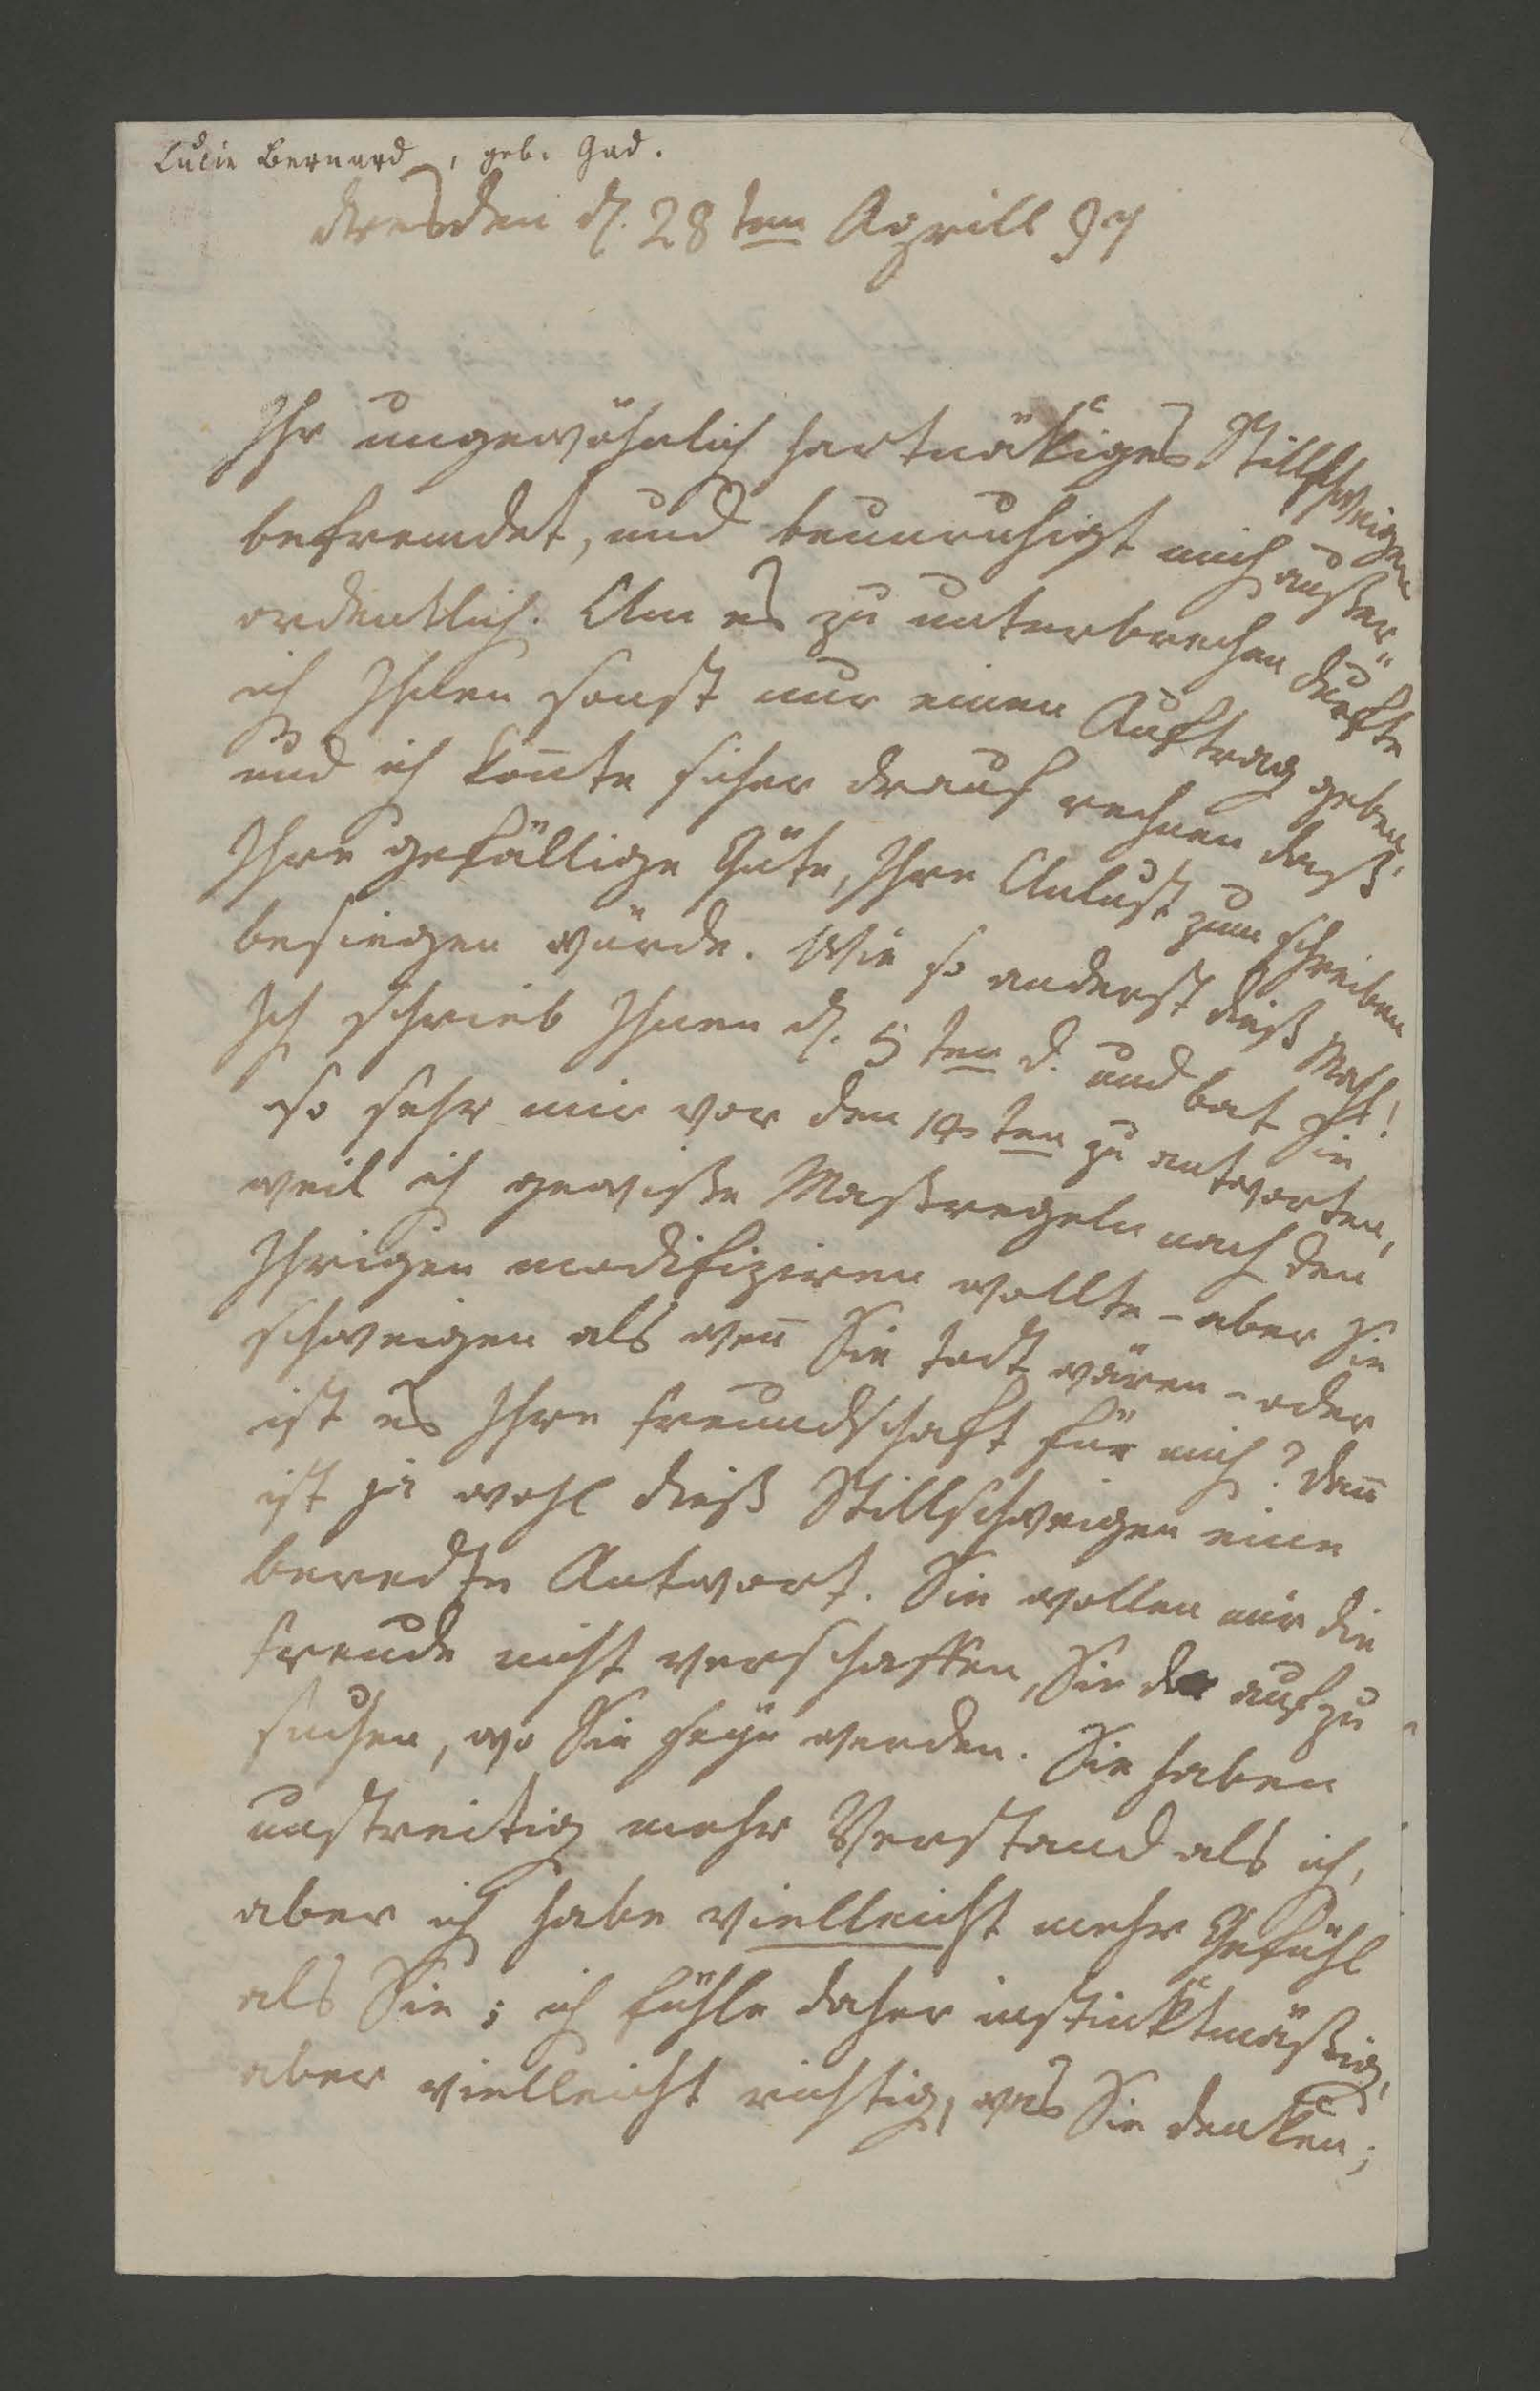 Lucie Bernard, geb. Gad.
dresden d. 28 ten Aprill 97
Ihr ungewöhnlich hartnäkiges Stillschweigen
befremdet, und beunruhigt mich außer"
ordentlich. Um es zu unterbrechen durfte
ich Ihnen sonst nur einen Auftrag geben,
und ich kon̄te sicher drauf rechnen daß,
Ihre gefällige Güte, Ihre Unlust zum schreiben
besiegen würde. Wie so anderst dieß Mahl!
Ich schrieb Ihnen d. 5 ten d. und bat Sie
so sehr mir vor den 14 ten zu antworten,
weil ich gewiße Maßregeln nach den
Ihrigen modifiziren wollte - aber Sie
schweigen als wen̄ Sie todt wären - oder
ist es Ihre freundschaft für mich? dan̄
ist ja wohl dieß Stillschweigen eine
beredte Antwort. Sie wollen mir die
freude nicht verschaffen, Sie da aufzu
suchen, wo Sie seÿn werden. Sie haben
unstreitig mehr Verstand als ich,
aber ich habe vielleicht mehr Gefühl
als Sie; ich fühle daher instinktmäßig,
aber vielleicht richtig, was Sie denken;